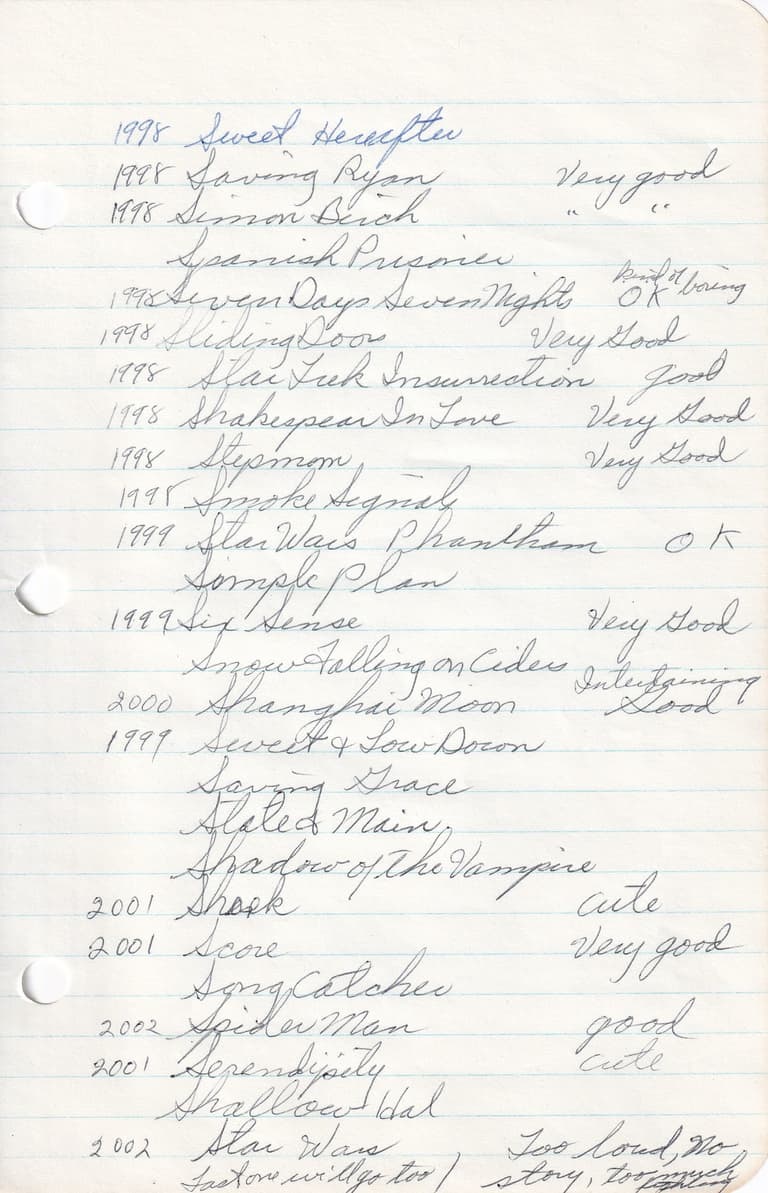 1998 Sweet Hereafter
1998 Saving Ryan Very good
1998 Simon Birch " "
Spanish Prisoner
1998 Seven Days Seven Nights OK kind of boring
1998 Sliding Doors Very Good
1998 Star Trek Insurrection good
1998 Shakespear In Love Very Good
1998 Stepmom Very Good
1998 Smoke Signals
1999 Star Wars Phantham OK
Simple Plan
1999 Six Sense Very Good
Snow Falling on Ciders
2000 Shanghai Moon Intertaining Good
1999 Sweet & Low Down
Saving Grace
State & Main
Shadow of the Vampire
2001 Shrek cute
2001 Score Very good
Song Catcher
2002 Spider Man good
2001 Serendipity cute
Shallow Hal
2002 Star Wars Too loud, No
Last one we'll go too! story, too much fighting